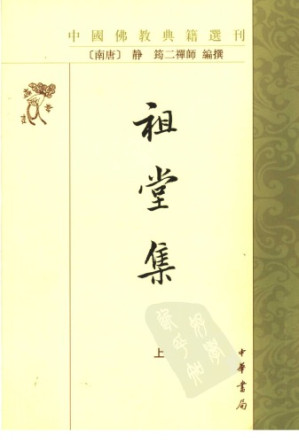 中國佛教典籍選刊
〔南唐〕 靜 筠二禪師 編撰
祖堂集
上
中華書局